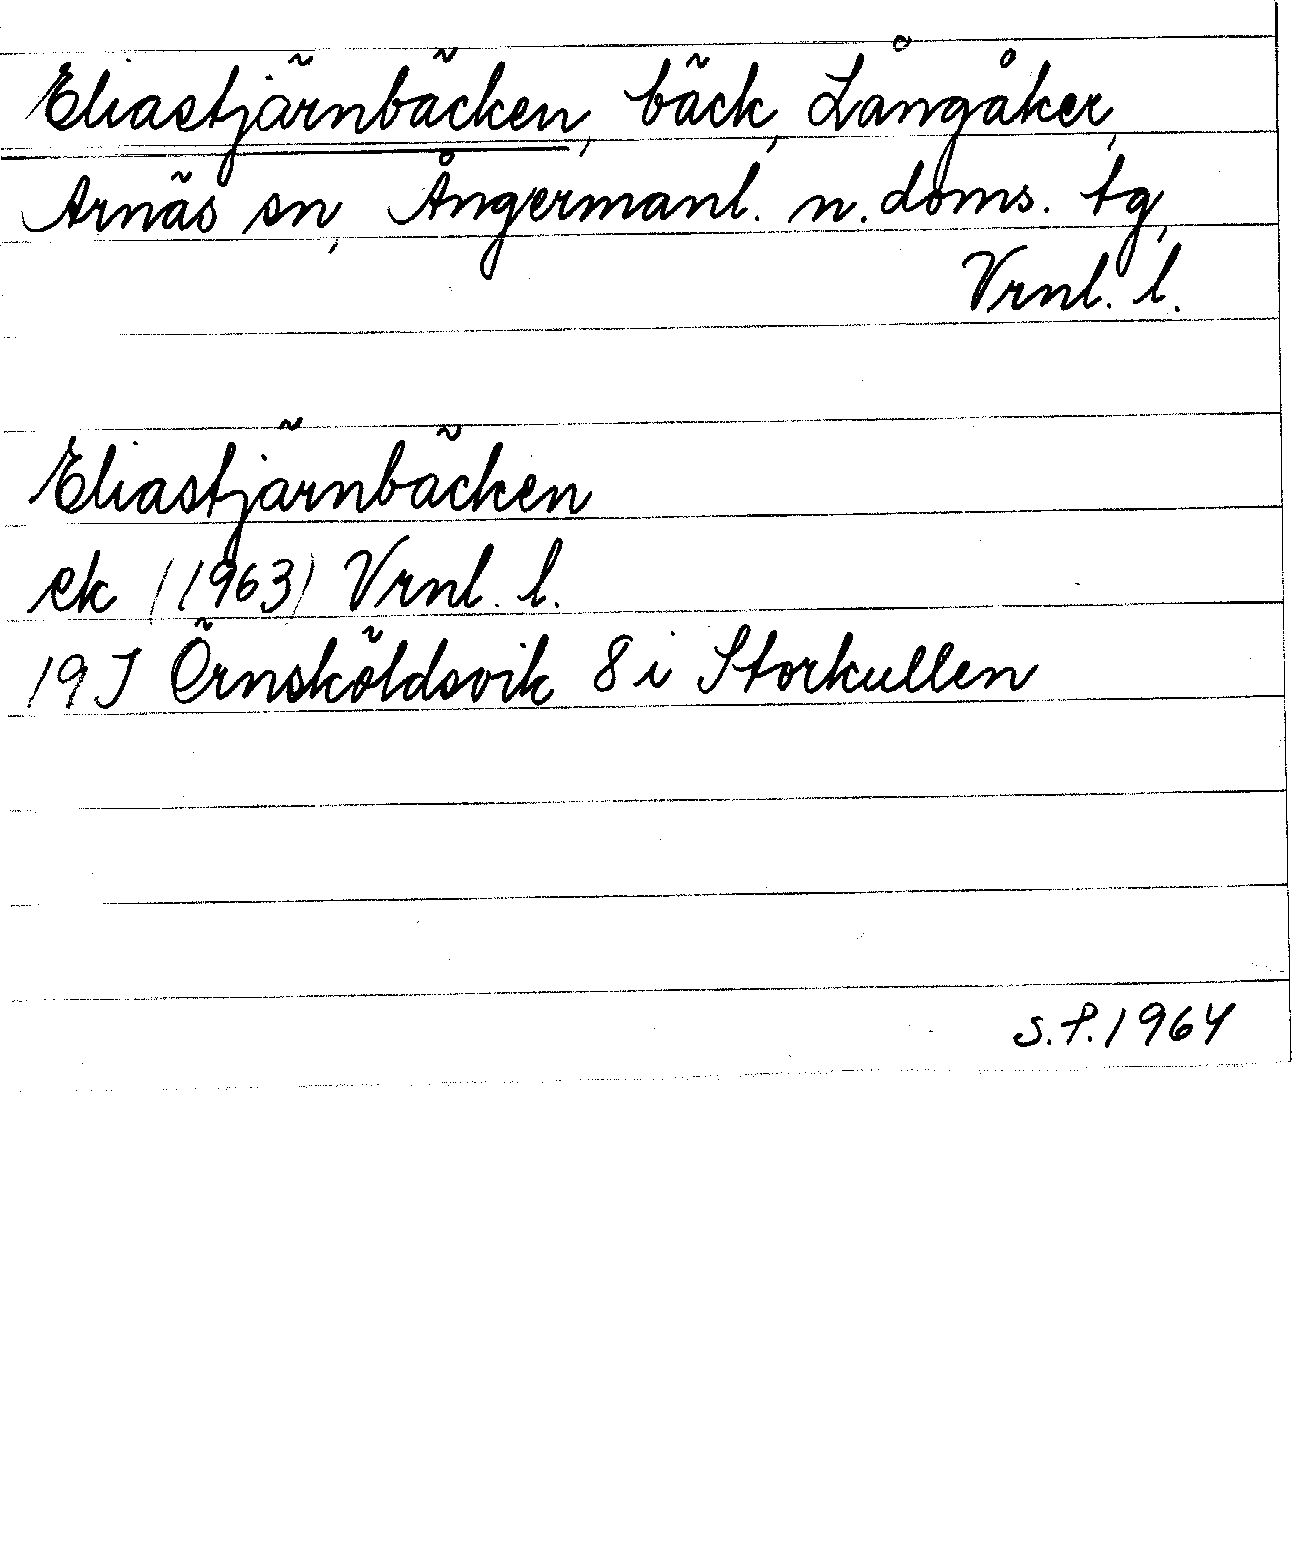 Eliastjärnbäcken, bäck, Långåker,
Arnäs sn, Ångermanl. n. doms. tg,
Vrnl. l.
Eliastjärnbäcken
ek (1963) Vrnl. l.
19J Örnsköldsvik 8 i Storkullen
S.P. 1964